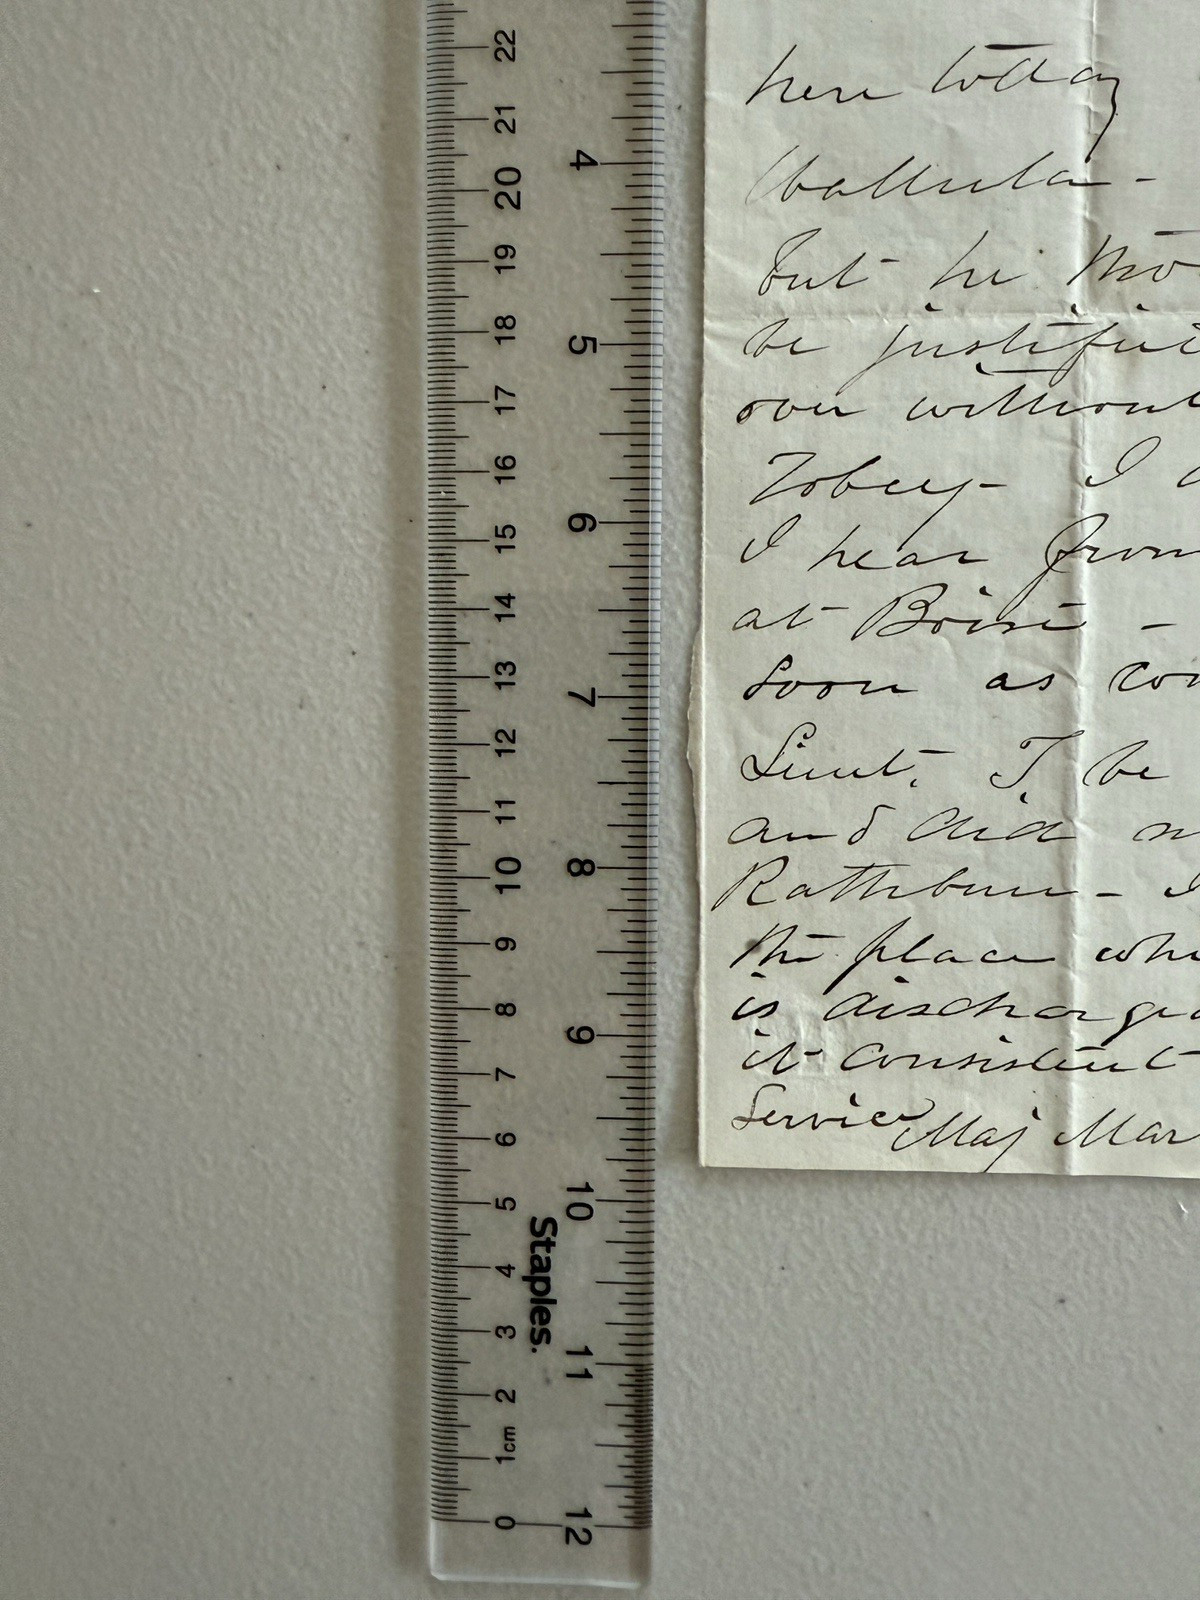 here today
Wallula -
but he tho
be justifie
over without
Tobey - I
I hear from
at Boise -
Soon as con
Lieut. T. be
and did n
Rathbun - I
the place whe
is discharged
it consistent
Service Maj Mar
22
21
20
19
18
17
16
15
14
13
12
11
10
9
8
7
6
5
4
3
2
1cm
0
4
5
6
7
8
9
10
11
12
Staples.